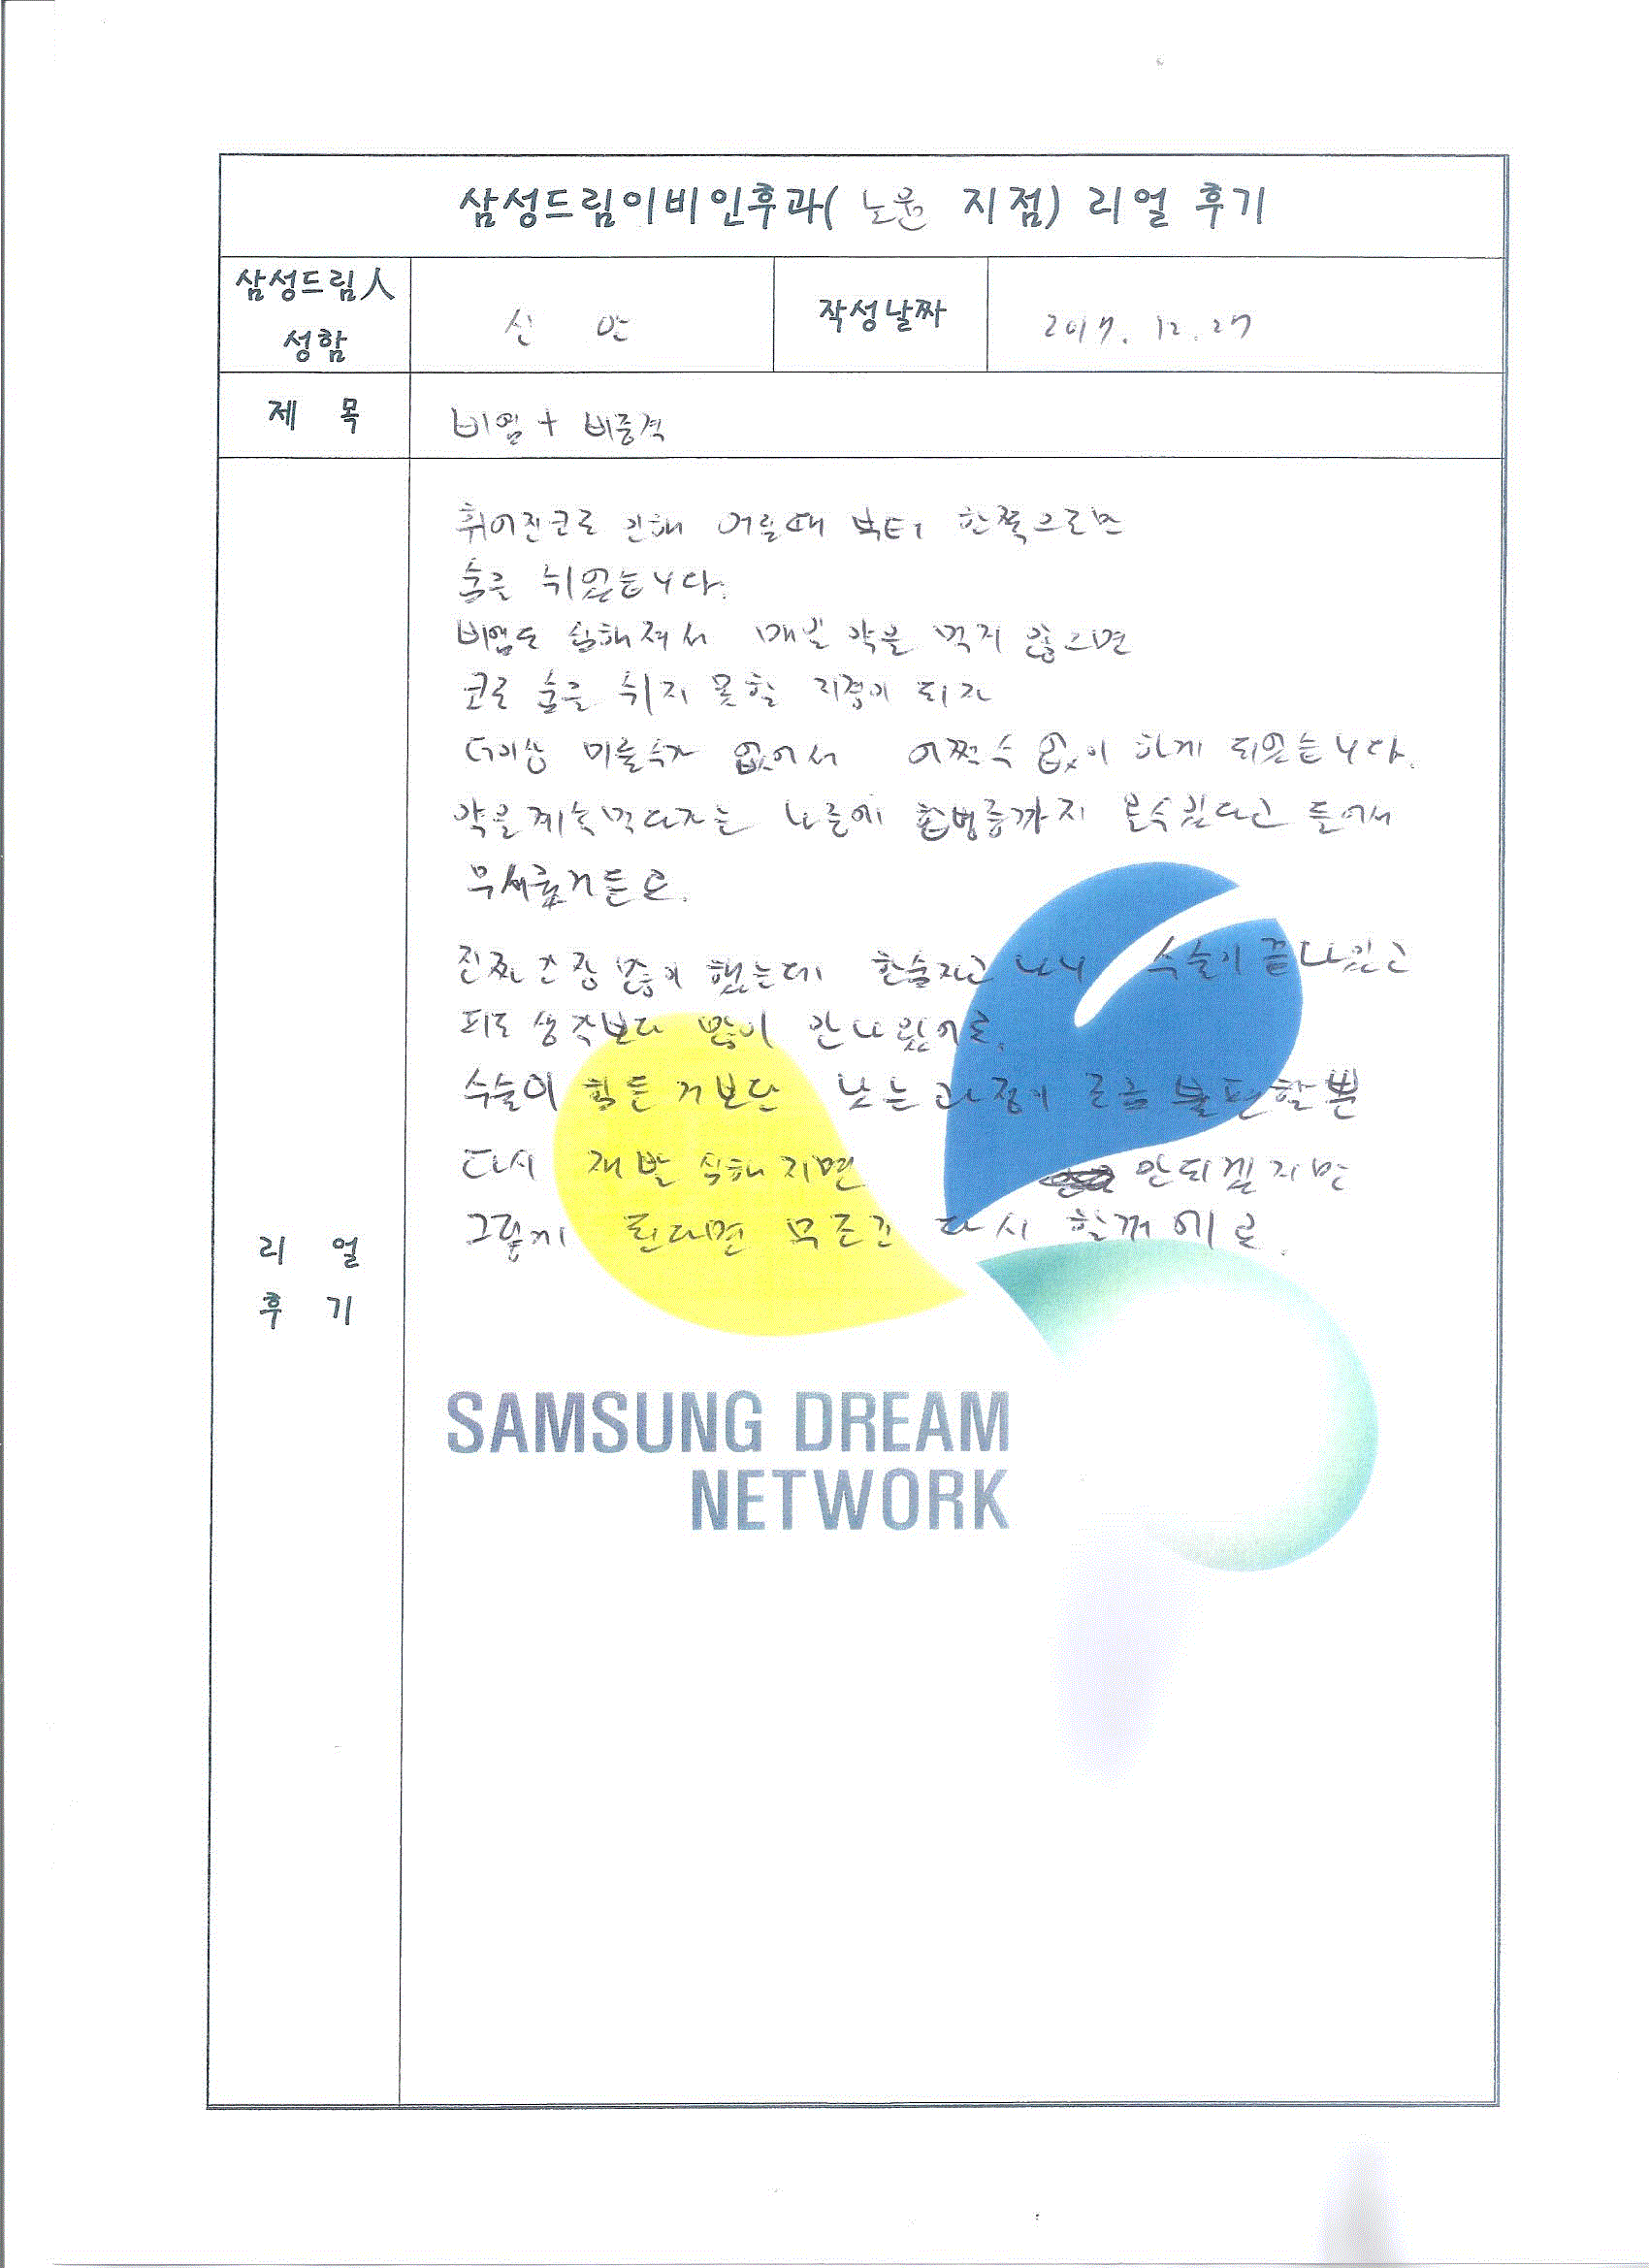 삼성드림이비인후과( 노원 지점) 리얼 후기
삼성드림人 성함
신 안
작성날짜
2017. 12. 27
제 목
비염 + 비중격
리 얼 후 기
휘어진코로 인해 어릴때 부터 한쪽으로만
숨을 쉬었습니다.
비염도 심해져서 매일 약을 먹지 않으면
코로 숨을 쉬지 못할 지경이 되자
더이상 미룰수가 없어서 어쩔수 없이 하게 되었습니다.
약을계속먹다가는 나중에 합병증까지 올수있다고 들어서
무서웠거든요.
진짜 긴장 많이 했는데 한숨자고 나니 수술이 끝나있고
피도 생각보다 많이 안나왔어요.
수술이 힘든 거보단 낫는 과정이 조금 불편할뿐
다시 재발 심해지면 안되겠지만
그렇게 된다면 무조건 다시 할꺼에요.
SAMSUNG DREAM
NETWORK